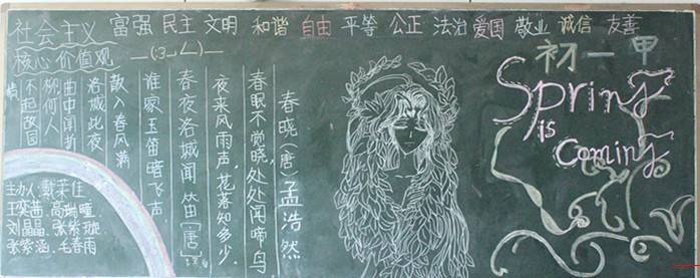 社会主义
核心价值观
富强 民主 文明 和谐 自由 平等 公正 法治 爱国 敬业 诚信 友善
初一甲
Spring
is
Coming
春晓(唐)孟浩然
春眠不觉晓,处处闻啼鸟
夜来风雨声,花落知多少.
春夜洛城闻笛[唐]
谁家玉笛暗飞声
散入春风满
洛城此夜
曲中闻折
柳何人
不起故园
情
主办人:
王奕茜.高瑞瞳
刘晶晶.张紫璇
张紫涵.毛春雨